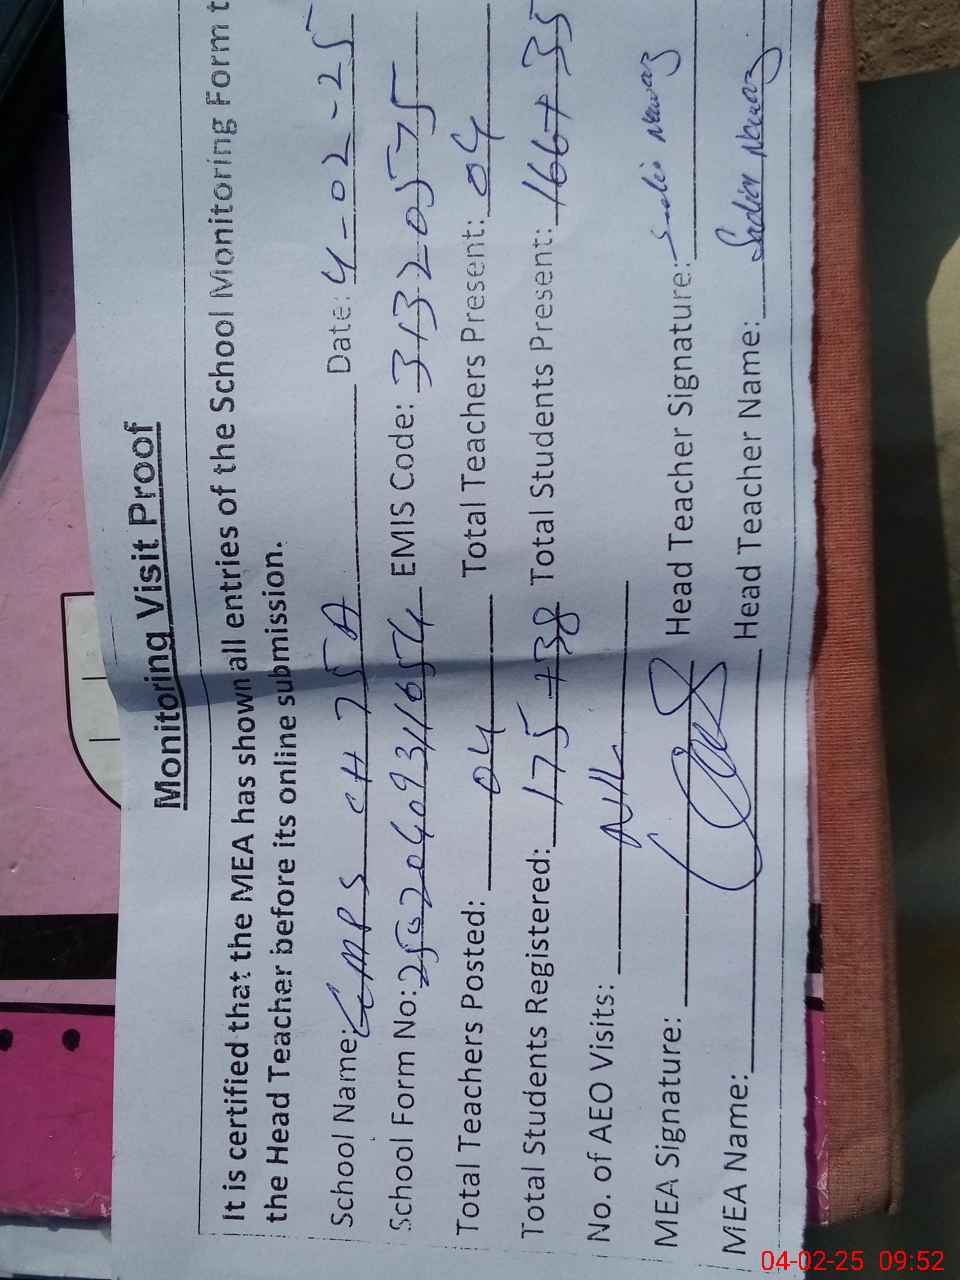 Monitoring Visit Proof
It is certified that the MEA has shown all entries of the School Monitoring Form t
the Head Teacher before its online submission.
School Name: GMPS CH 75A Date: 4-02-25
School Form No: EMIS Code: 31320575
Total Teachers Posted: 04 Total Teachers Present: 04
Total Students Registered: 175+38 Total Students Present: 166+35
No. of AEO Visits: NIL
MEA Signature: Head Teacher Signature: Sadia Nawaz
MEA Name: Head Teacher Name: Sadia Nawaz
04-02-25 09:52